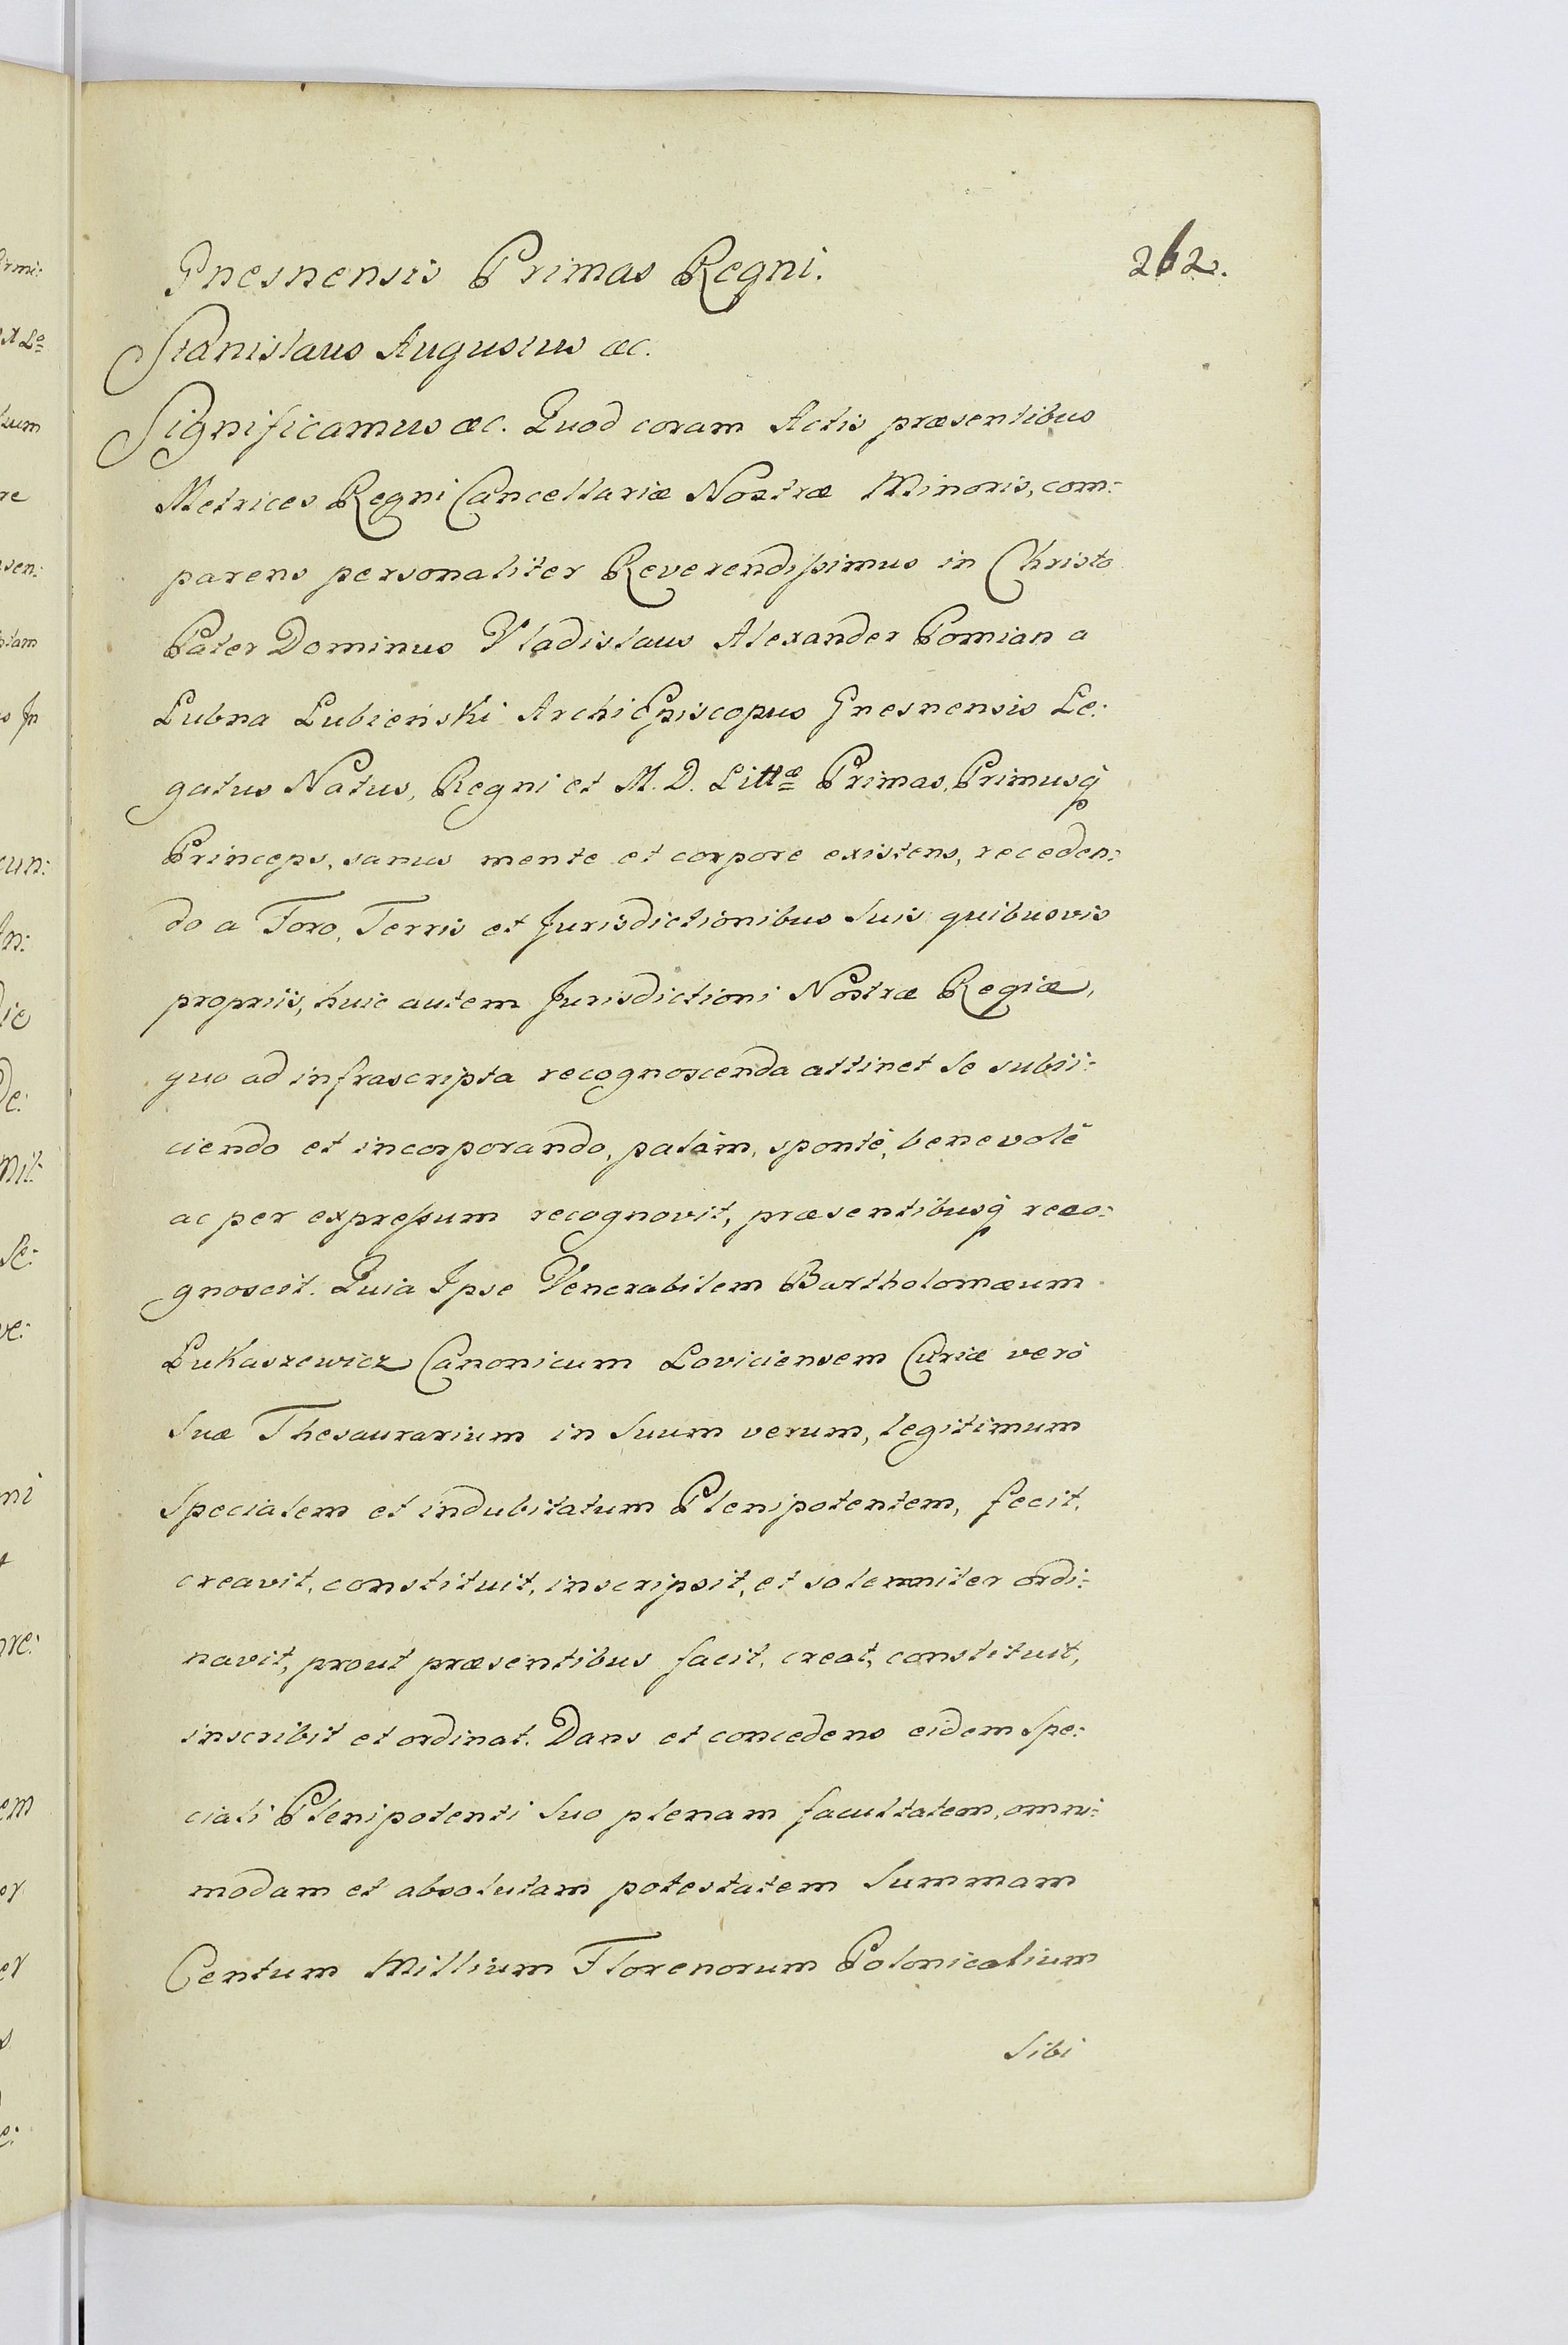 262.
Gnesnensis Primas Regni.
Stanislaus Augustus &c.
Significamus &c. Quod coram Actis præsentibus
Metrices Regni Cancellariæ Nostræ Minoris, com:
parens personaliter Reverendissimus in Christo
Pater Dominus Vladislaus Alexander Pomian a
Lubna Lubieński ArchiEpiscopus Gnesnensis Le:
gatus Natus, Regni et M. D. Littæ Primas, Primusq
Princeps, sanus mente et corpore existens, receden:
do a Foro, Terris et Jurisdictionibus Suis quibusvis
propriis, huic autem Jurisdictioni Nostræ Regiæ,
quo ad infrascripta recognoscenda attinet se subii:
ciendo et incorporando, palàm, spontè, benevolè
ac per expressum recognovit, præsentibusq reco:
gnoscit. Quia Ipse Venerabilem Bartholomæum
Lukaszewicz Canonicum Loviciensem Curiæ verò
Suæ Thesaurarium in Suum verum, legitimum
Specialem et indubitatum Plenipotentem, fecit,
creavit, constituit, inscripsit, et solemniter ordi:
navit, prout præsentibus facit, creat, constituit,
inscribit et ordinat. Dans et concedens eidem Spe:
ciali Plenipotenti Suo plenam facultatem, omni:
modam et absolutam potestatem Summam
Centum Millium Florenorum Polonicalium
Sibi